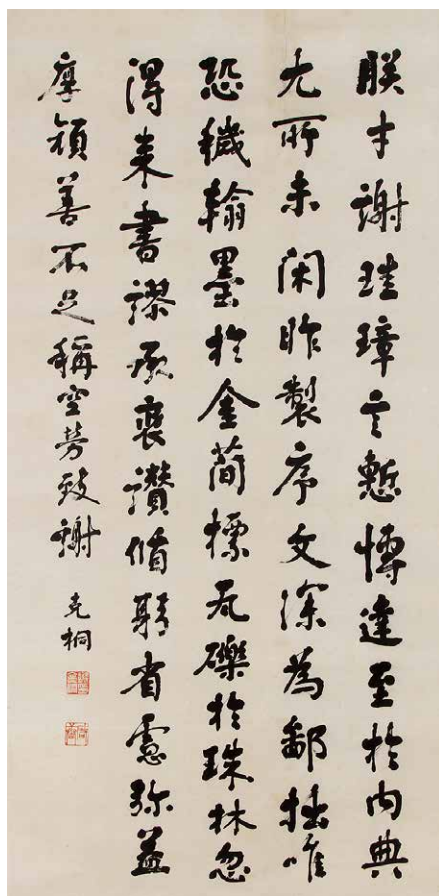 朕才謝珪璋言慙博達至於内典
尤所未閑昨製序文深為鄙拙唯
恐穢翰墨於金簡標瓦礫於珠林忽
得来書謬承褒讃循躬省慮弥益
厚顔善不足稱空勞致謝 克桐